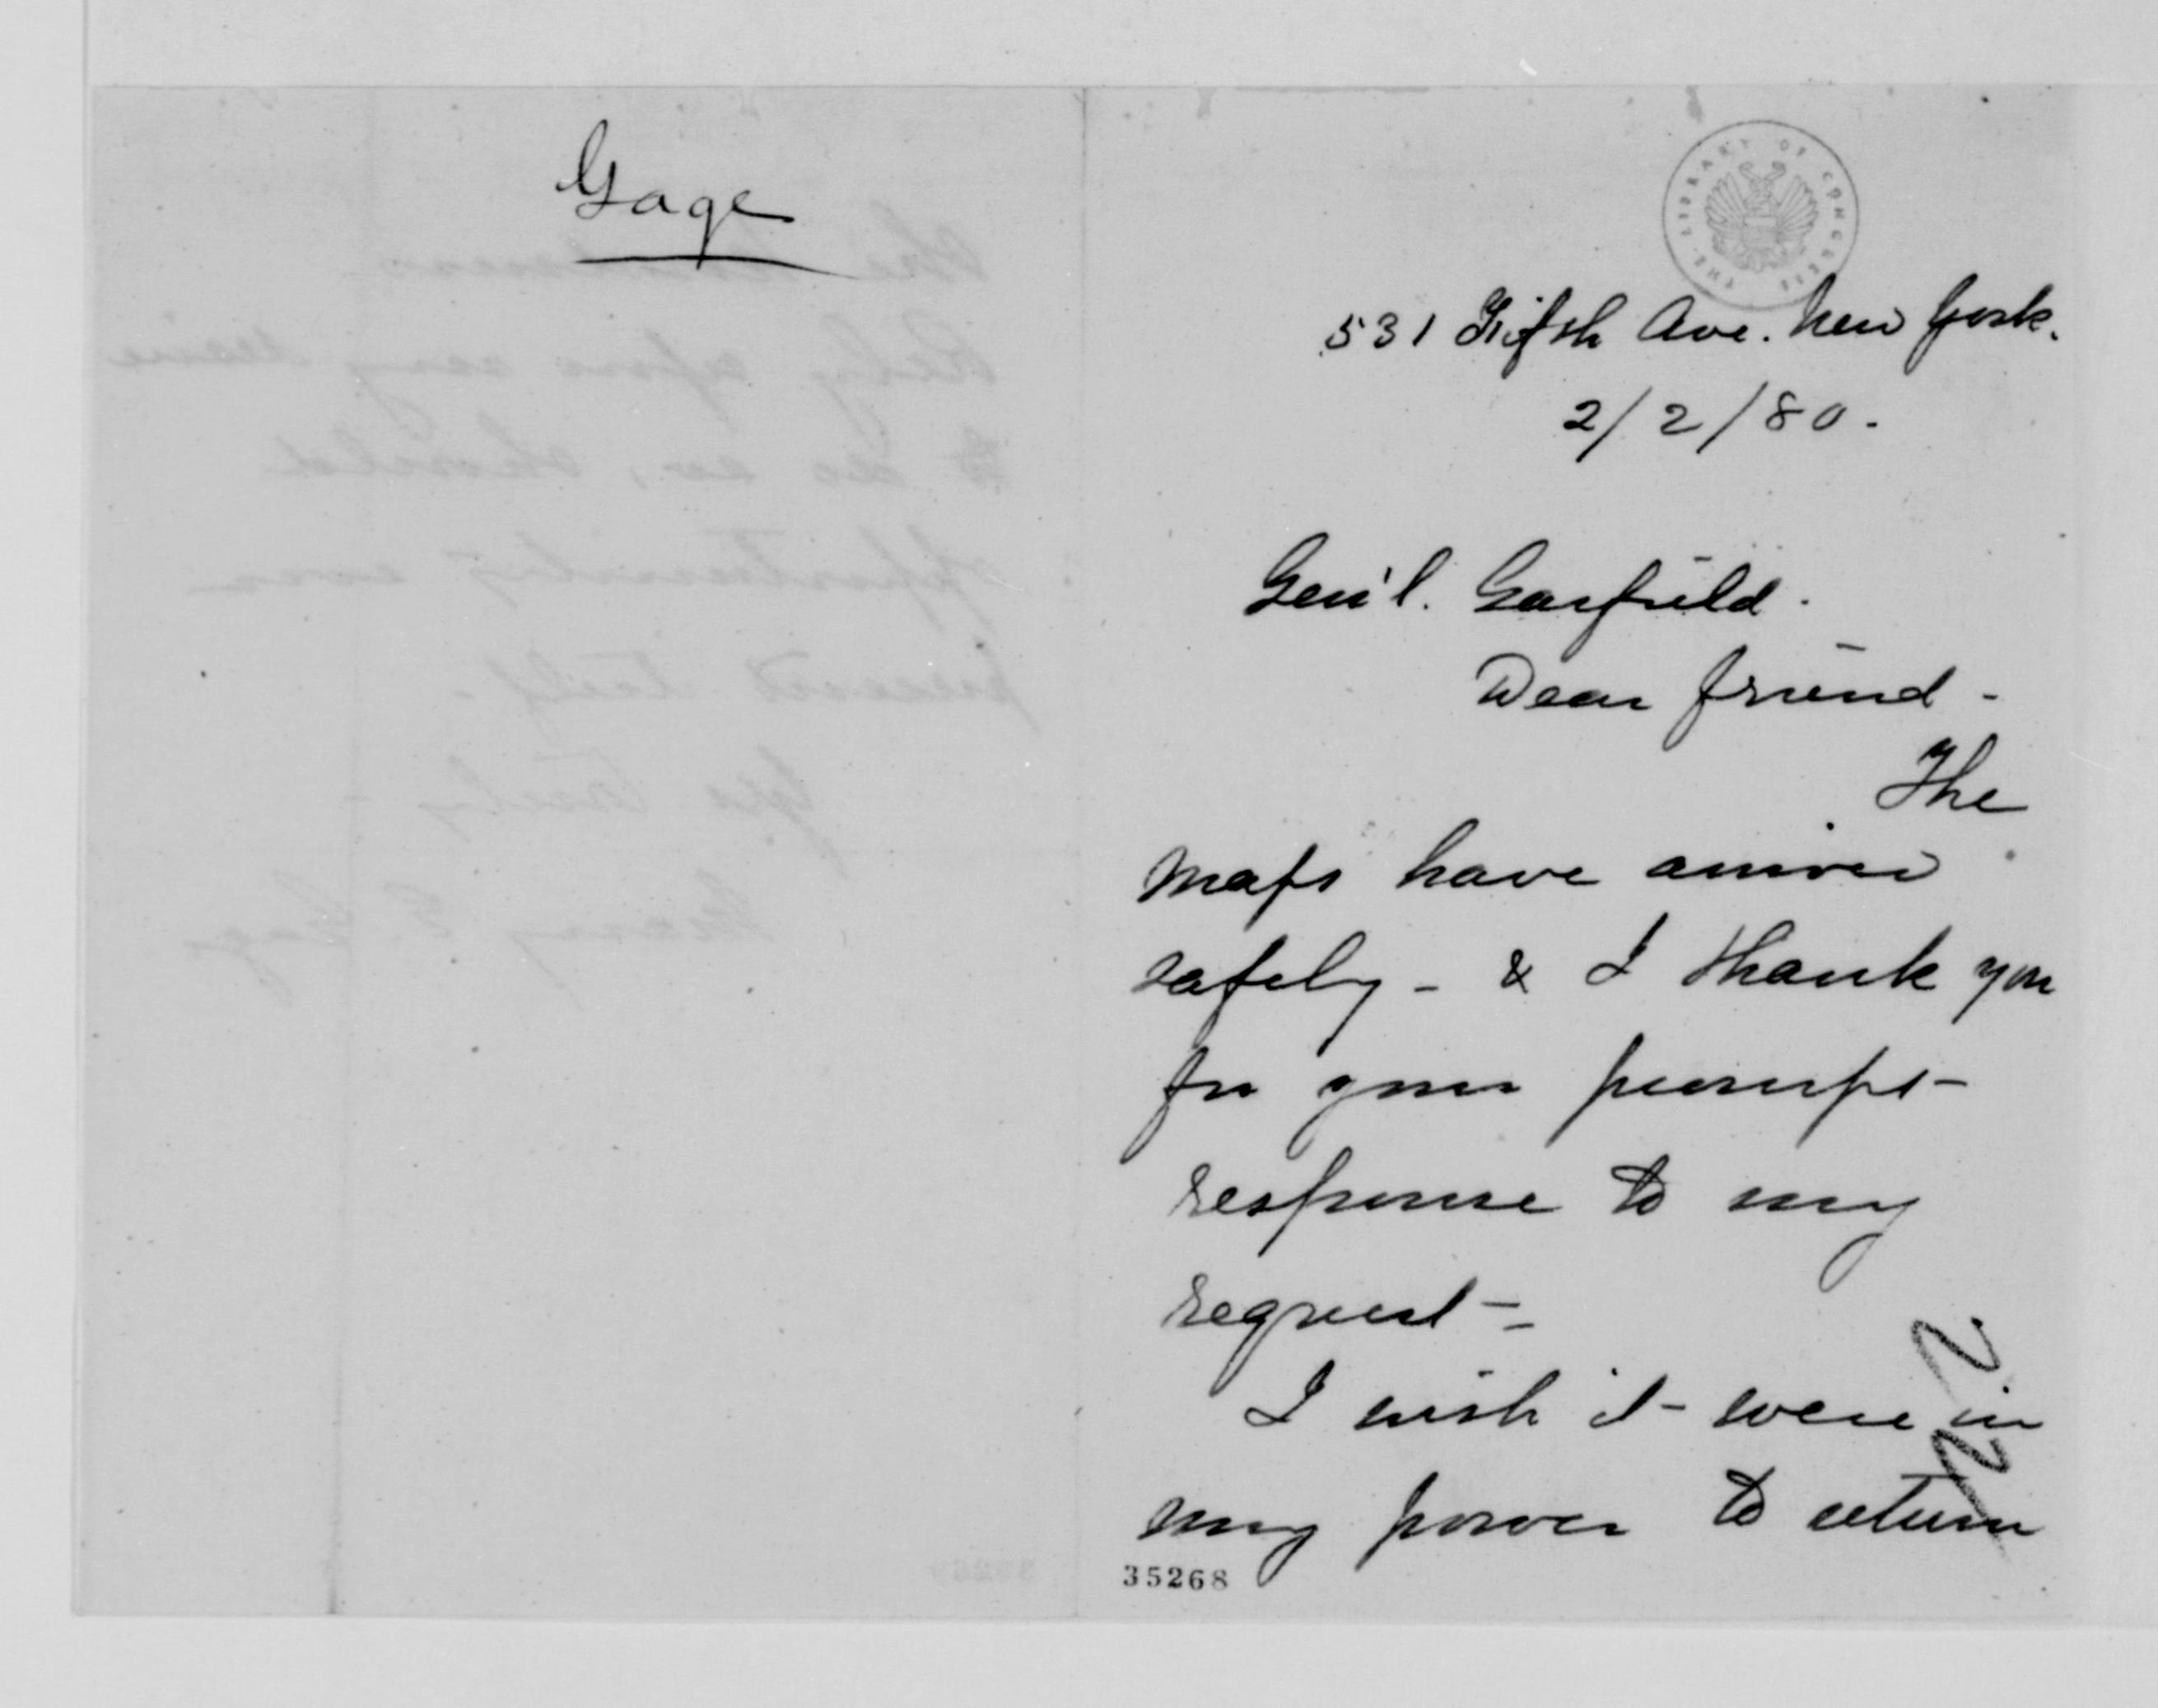 Gage
THE LIBRARY OF CONGRESS
531 Fifth Ave. New York.
2/2/80.
Gen'l. Garfield.
Dear friend -
The
maps have arrived
safely - & I thank you
for your prompt
response to my
request -
I wish it were in
my power to return
35268